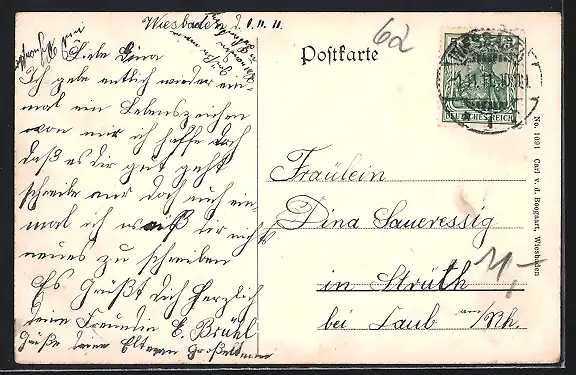 Wiesbaden d.
Liebe Dina
Ich gebe entlich wieder ein-
mal ein Lebenszeichen
von mir ich hoffe doch
daß es dir gut geht
schreibe mir doch auch ein-
mal ich weiß dir nichts
neues zu schreiben
Es Grüßt dich Herzlich
deine Freundin E. Brühl
Grüße deine Eltern Großeltern
62
Postkarte
DEUTSCHES REICH
Fräulein
Dina Saueressig
in Strüth
bei Laub am/Rh.
11,-
No. 1091 Carl v. d. Boogaart, Wiesbaden